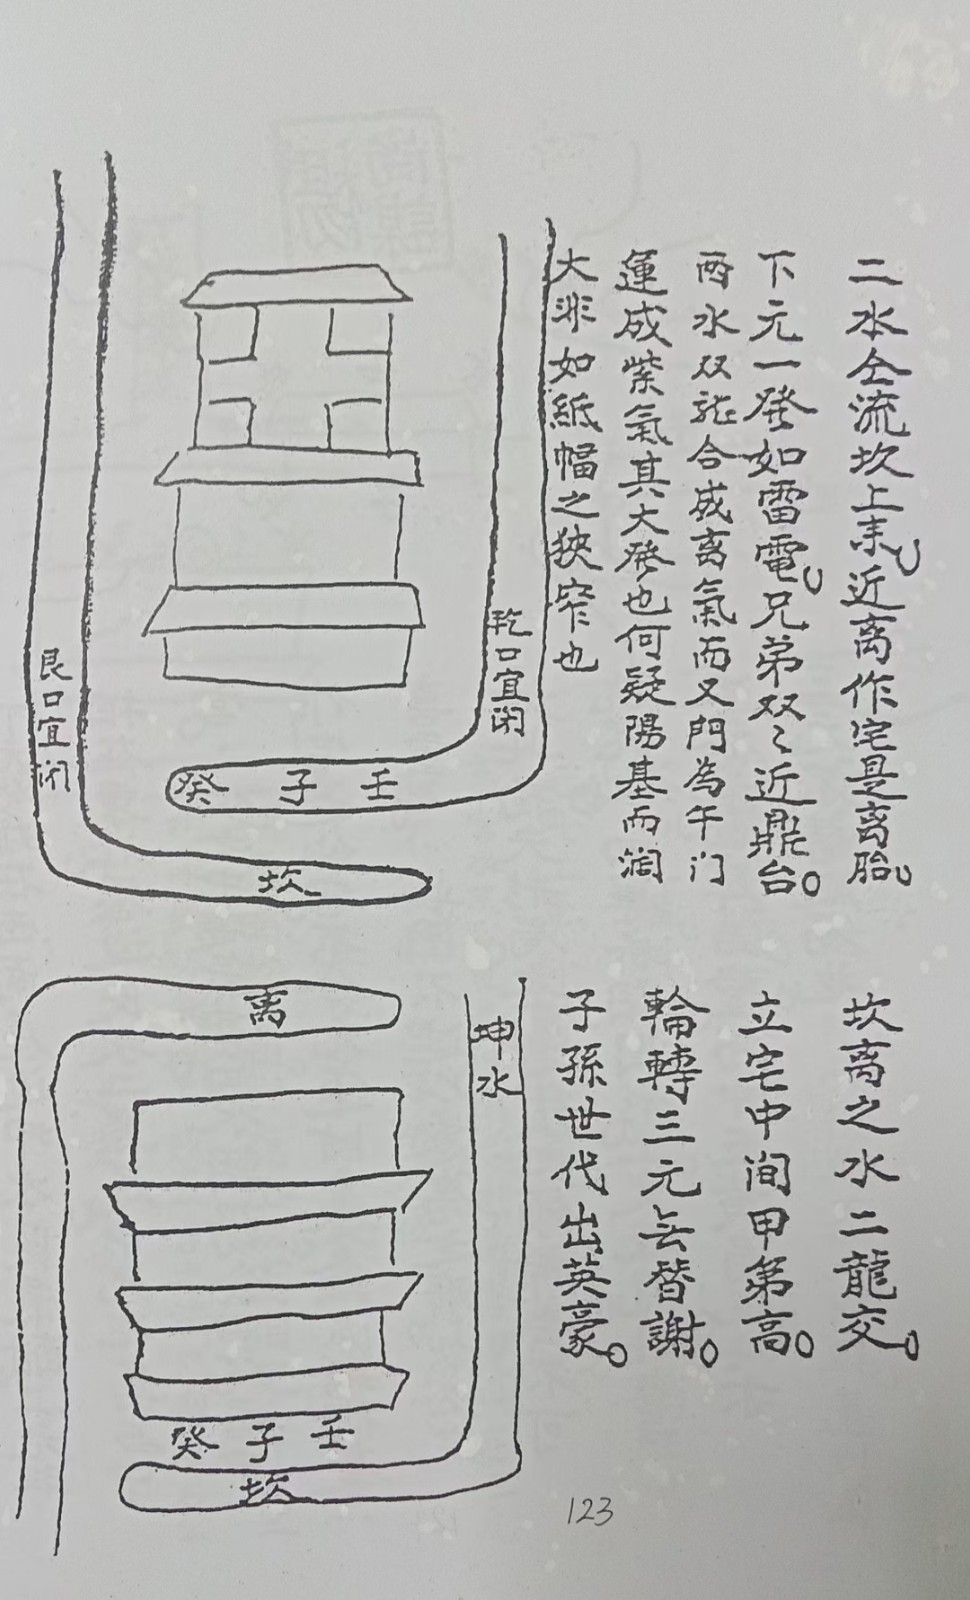 二水仝流坎上来，近离作宅是离胎，
下元一發如雷電，兄弟双〻近鼎台。
两水双龍合成离氣而又門為午门
運成紫氣其大發也何疑陽基而濶
大非如紙幅之狭窄也
乾口宜闭
艮口宜闭
癸 子 壬
坎
坎离之水二龍交。
立宅中间甲第高。
輪轉三元无替謝。
子孫世代出英豪。
离
坤水
癸 子 壬
坎
123